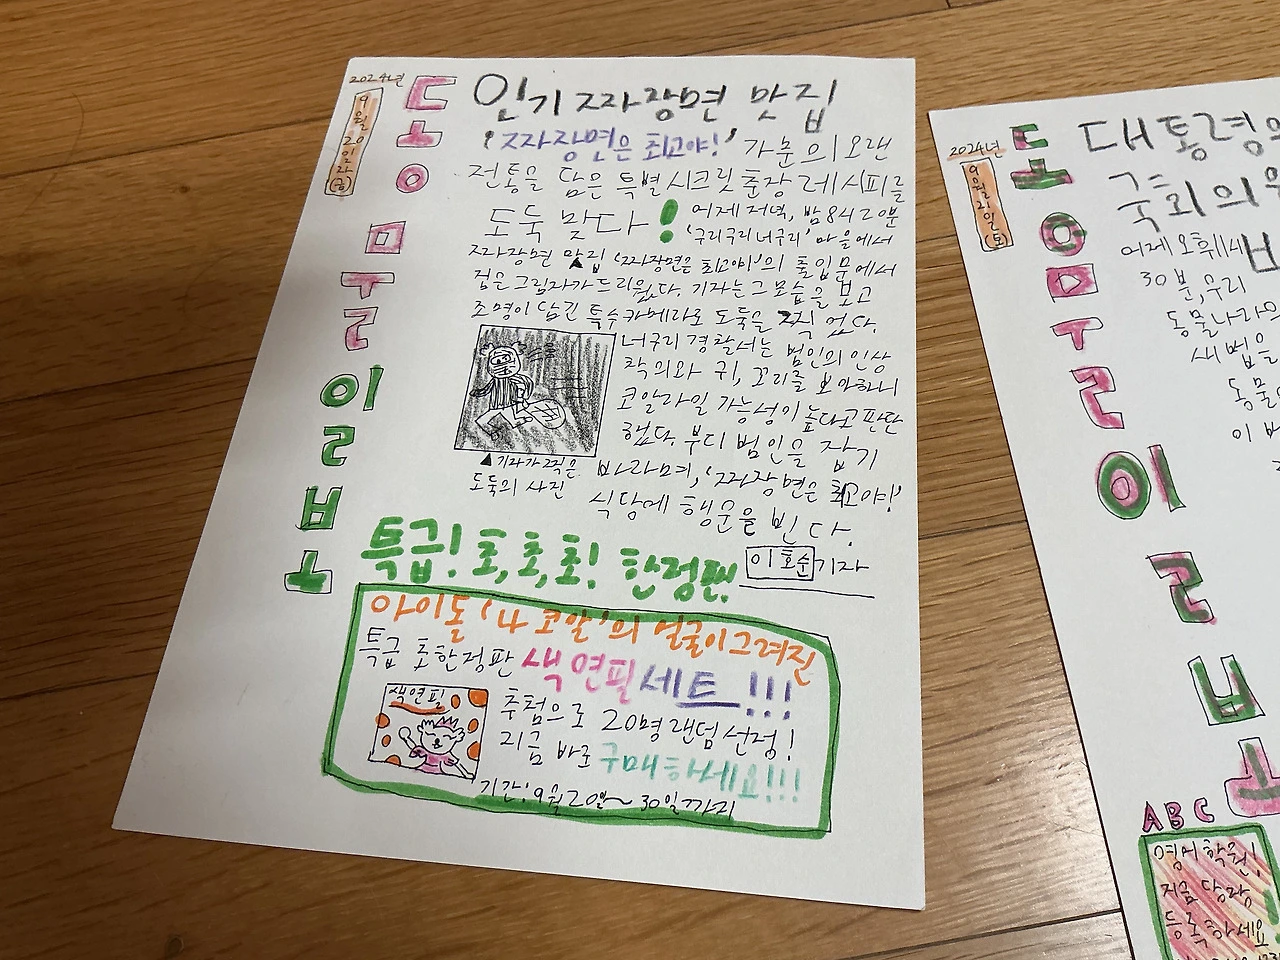 2024년
9월 20일자(금)
동물일보
인기 짜장면 맛집
'짜장면은 최고야!' 가문의 오랜
전통을 담은 특별시크릿 춘장 레시피를
도둑 맞다! 어제 저녁, 밤 8시 2분
'구리구리너구리' 마을에서
짜장면 맛집 '짜장면은 최고야!'의 출입문에서
검은 그림자가 드리웠다. 기자는 그 모습을 보고
조명이 담긴 특수카메라로 도둑을 찍었다.
너구리 경찰서는 범인의 인상
착의와 귀, 꼬리를 보아하니
코알라일 가능성이 높다고 판단
했다. 부디 범인을 잡기
바라며, '짜장면은 최고야!'
식당에 행운을 빈다.
▲기자가 찍은
도둑의 사진
이호순 기자
특급! 초,초,초! 한정판!
아이돌 '나 코알'의 얼굴이 그려진
특급 초한정판 색연필세트!!!
색연필
추첨으로 20명 랜덤 선정!
지금 바로 구매하세요!!!
기간: 9월 20일~30일까지
2024년
9월 21일(토)
동물일보
대통령
국회의
어제 오후 1시
30분, 우리
동물나라의
새 법을
동물
이 버
ABC
영어학원!
지금 당장
등록하세요